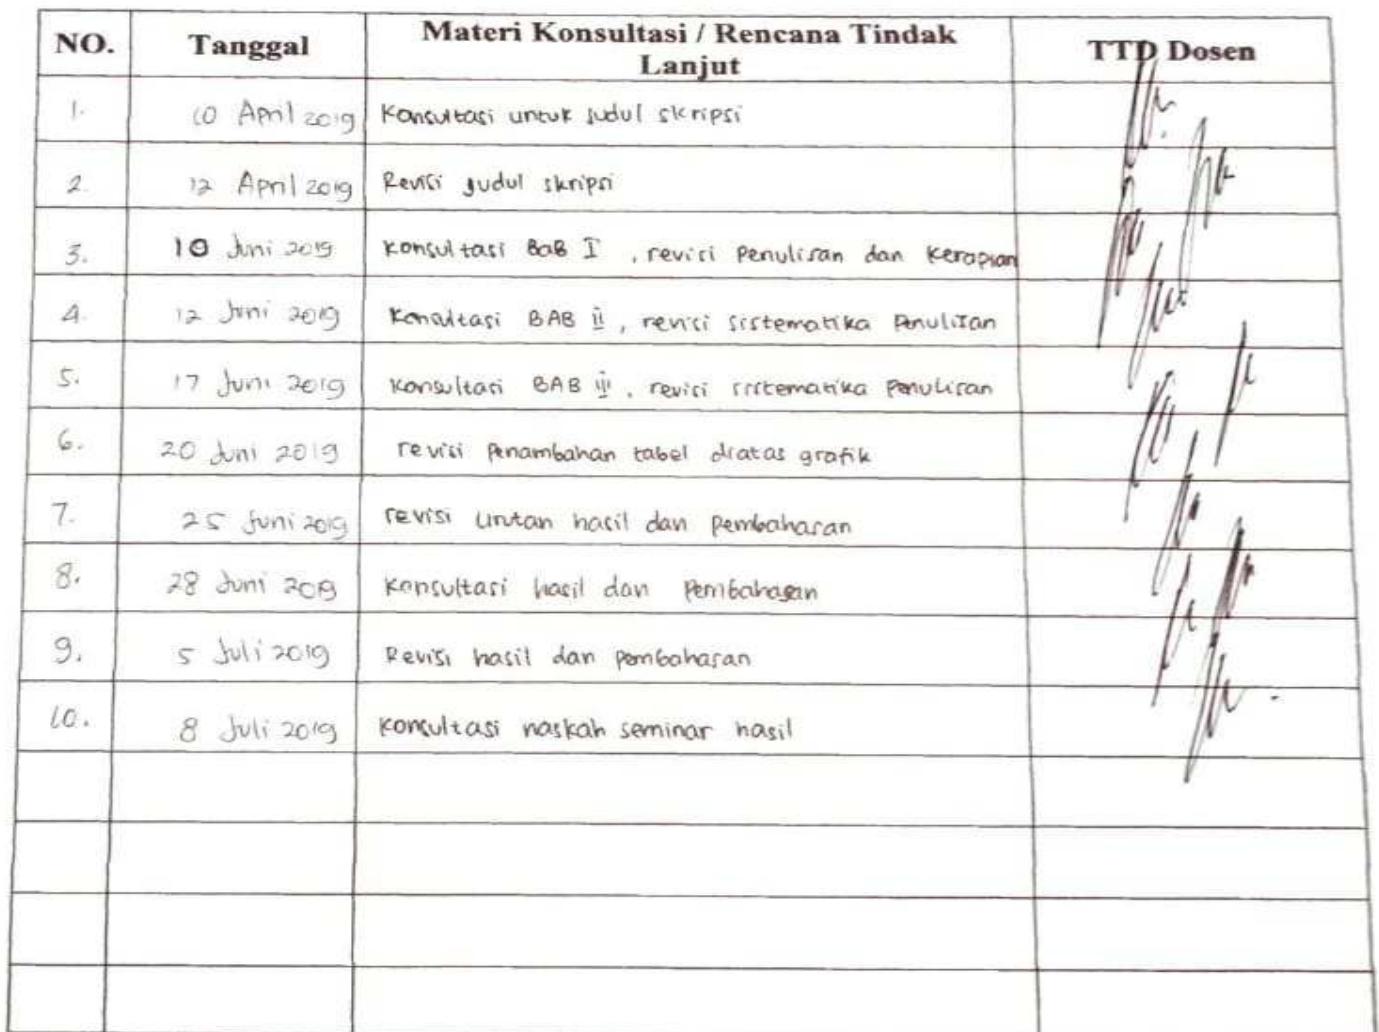 NO. Tanggal Materi Konsultasi / Rencana Tindak Lanjut TTD Dosen
1. 10 April 2019 Konsultasi untuk judul skripsi
2. 12 April 2019 Revisi judul skripsi
3. 10 Juni 2019 Konsultasi BaB I , revisi Penulisan dan Kerapian
4. 12 Juni 2019 Konsultasi BAB ii , revisi sistematika Penulisan
5. 17 Juni 2019 Konsultasi BAB iii , revisi sistematika Penulisan
6. 20 Juni 2019 revisi Penambahan tabel diatas grafik
7. 25 Juni 2019 revisi urutan hasil dan Pembahasan
8. 28 Juni 2019 Konsultasi hasil dan Pembahasan
9. 5 Juli 2019 Revisi hasil dan pembahasan
10. 8 Juli 2019 Konsultasi naskah seminar hasil